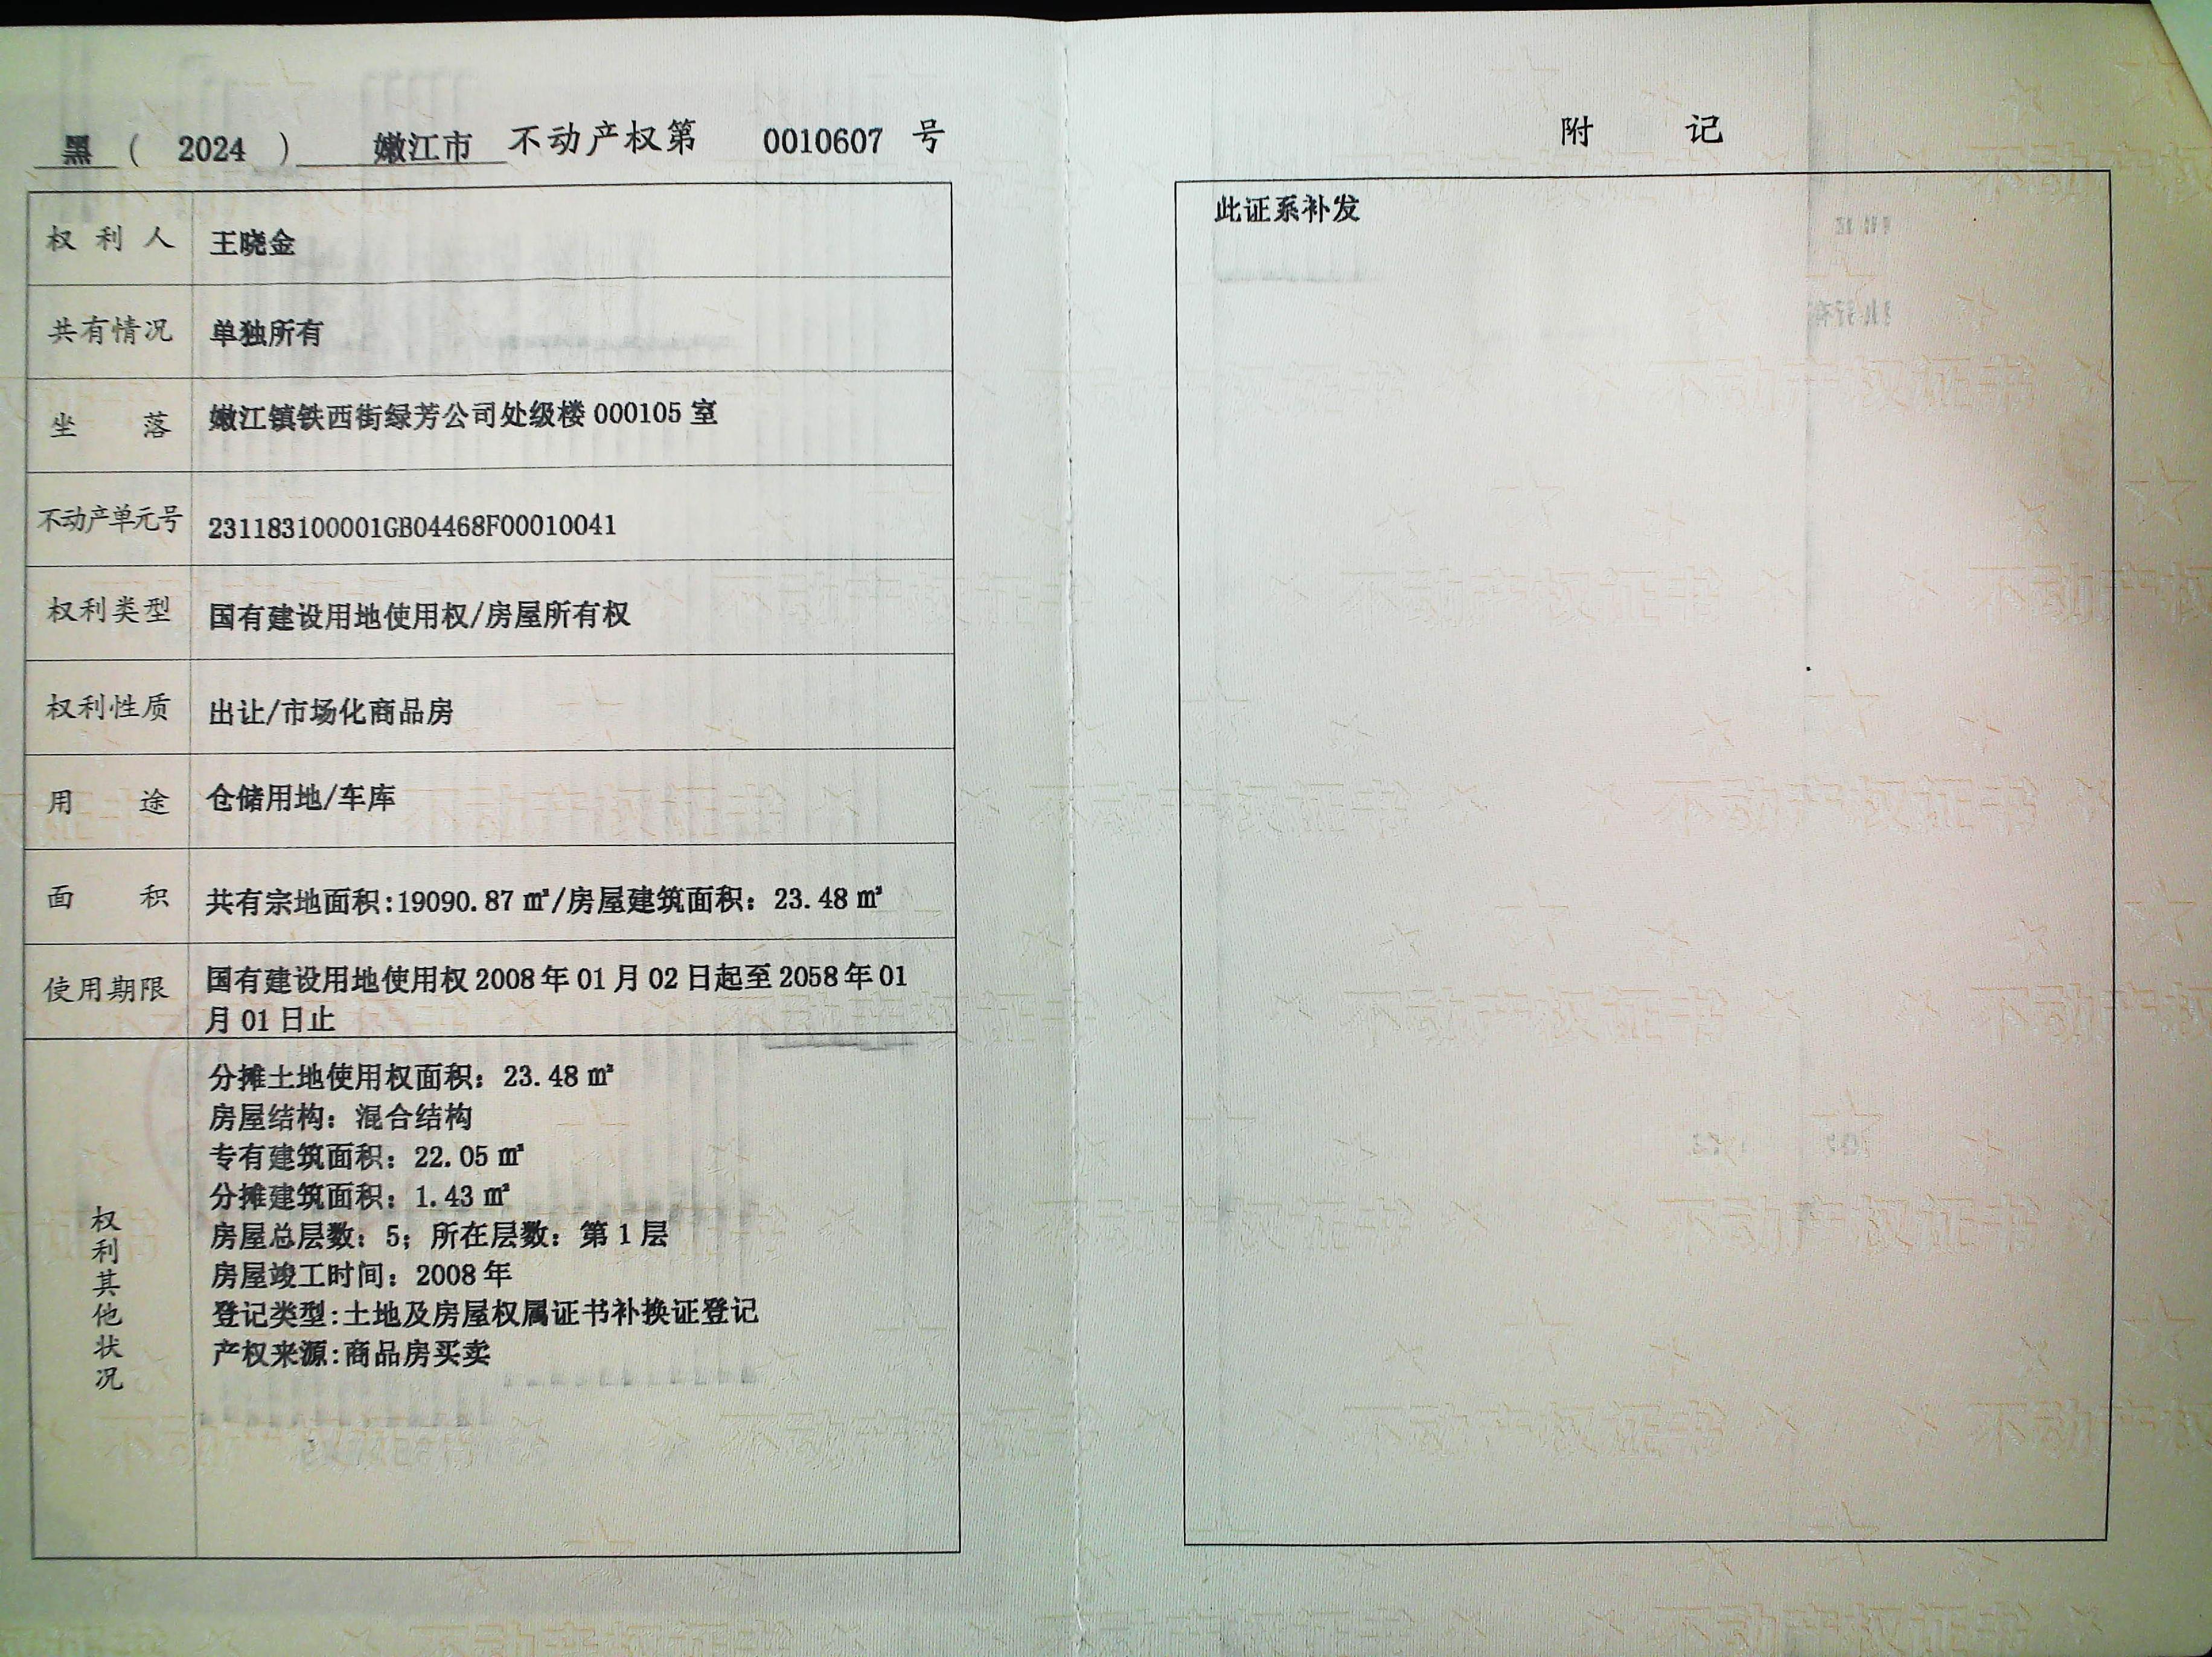 黑（2024）嫩江市不动产权第0010607号
权利人 王晓金
共有情况 单独所有
坐落 嫩江镇铁西街绿芳公司处级楼000105室
不动产单元号 231183100001GB04468F00010041
权利类型 国有建设用地使用权/房屋所有权
权利性质 出让/市场化商品房
用途 仓储用地/车库
面积 共有宗地面积:19090.87㎡/房屋建筑面积：23.48㎡
使用期限 国有建设用地使用权2008年01月02日起至2058年01
月01日止
权利其他状况
分摊土地使用权面积：23.48㎡
房屋结构：混合结构
专有建筑面积：22.05㎡
分摊建筑面积：1.43㎡
房屋总层数：5；所在层数：第1层
房屋竣工时间：2008年
登记类型:土地及房屋权属证书补换证登记
产权来源:商品房买卖
附记
此证系补发